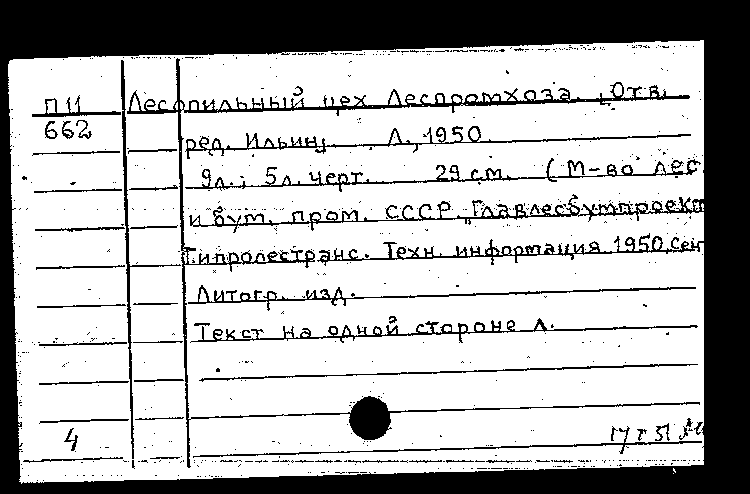 П11 Лесопильный цех Леспромхоза. Отв.
662
ред. Ильин. Л., 1950.
9л.; 5л. черт. 29 см. (М-во лес.
и бум. пром. СССР. „Главлесбумпроект
Гипролестранс. Техн. информация 1950, Сен
Литогр. изд.
Текст на одной стороне л.
4